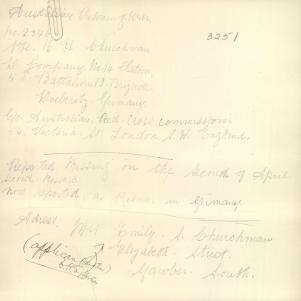 Australian Prisoner of War
No. 2346
3251
Pte. R H Churchman
D Company No 14 Platoon
5th Battalion Brigade
Doeberitz Germany
C/o Australian Red Cross commissioni
54. Victoria St London S.W England.
Reported missing on the second of April
now reported a prisoner in Germany
Adress Mrs Emily. S. Churchman
Elizabeth Street.
Gawler South.
(applicant